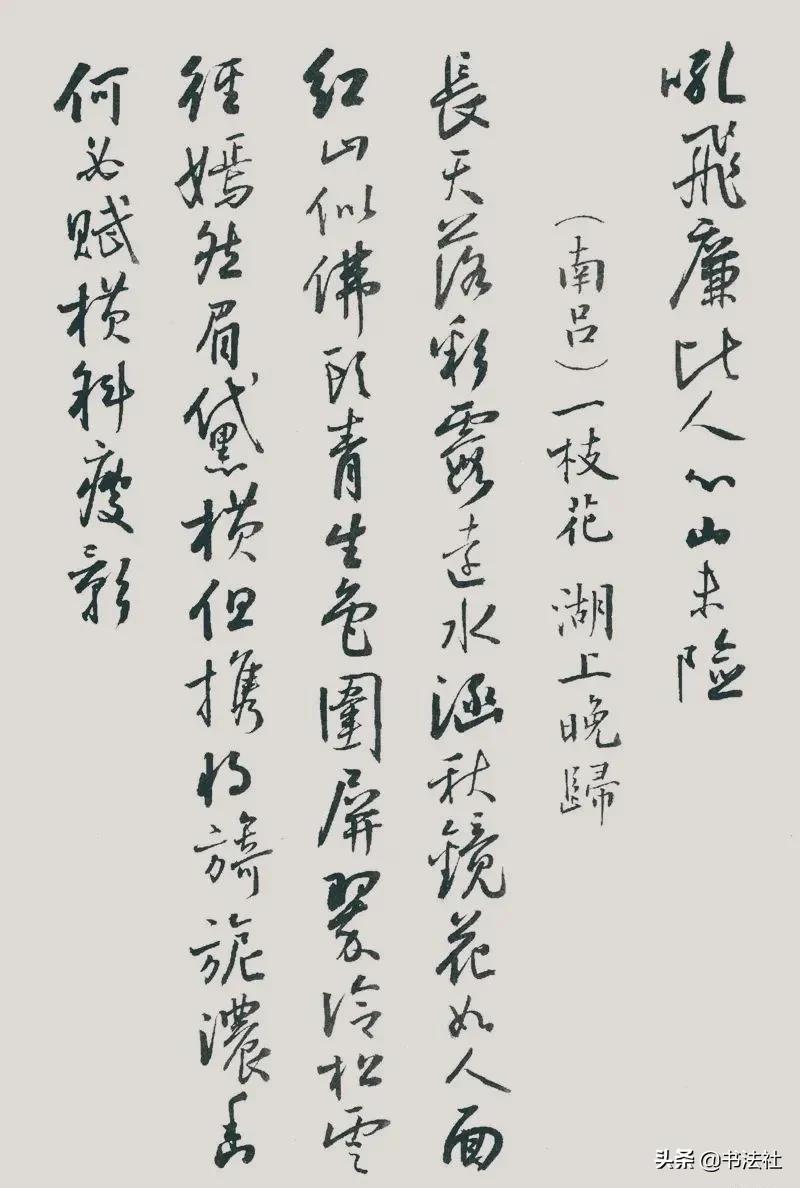 吼飛廉比人心山未險
（南呂）一枝花 湖上晚歸
長天落彩霞遠水涵秋鏡花如人面
紅山似佛頭青生色圍屏翠冷松雲
徑嫣然眉黛橫但携將旖旎濃香
何必賦橫斜瘦影
头条 @书法社